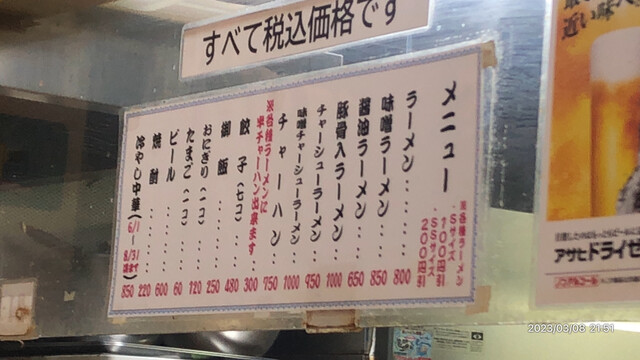 すべて税込価格です
メニュー
※各種ラーメン
・Sサイズ 100円引
・SSサイズ 200円引
ラーメン‥‥‥ 800
味噌ラーメン‥ 850
醤油ラーメン‥ 650
豚骨入ラーメン 1000
チャーシューラーメン 950
味噌チャーシューラーメン 1000
チャーハン‥ 750
※各種ラーメンに
半チャーハン出来ます 300
餃子(七コ) 480
御飯‥‥‥ 250
おにぎり(一コ)‥ 120
たまご(一コ)‥ 60
ビール‥‥‥ 600
焼酎‥‥‥ 220
冷やし中華(6/1〜8/31頃まで) 850
アサヒドライゼ
ノンアルコール
2023/03/08 21:51